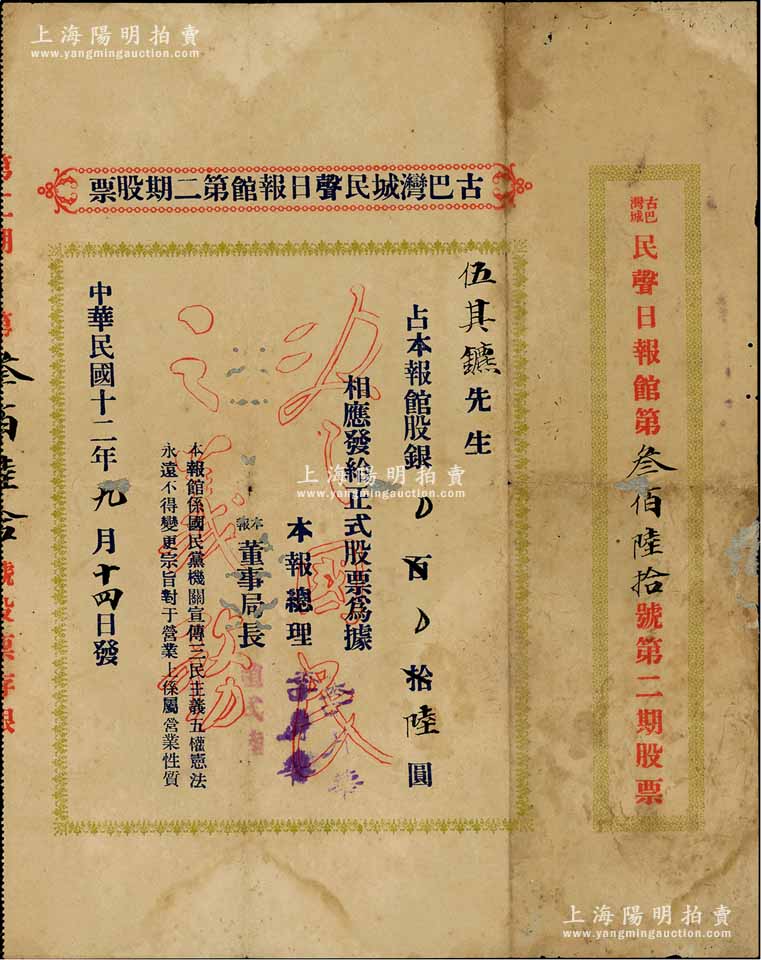 上海陽明拍賣
www.yangmingauction.com
古巴灣城
民聲日報館第叁佰陸拾號第二期股票
古巴灣城民聲日報館第二期股票
伍其鑣先生
占本報館股銀 百 拾陸圓
相應發給正式股票為據
本報總理
本報董事局長
本報館係國民黨機關宣傳三民主義五權憲法
永遠不得變更宗旨對于營業上係屬營業性質
中華民國十二年九月十四日發
第二期 第叁佰陸拾號股票存根
上海陽明拍賣
www.yangmingauction.com
上海陽明拍賣
www.yangmingauction.com